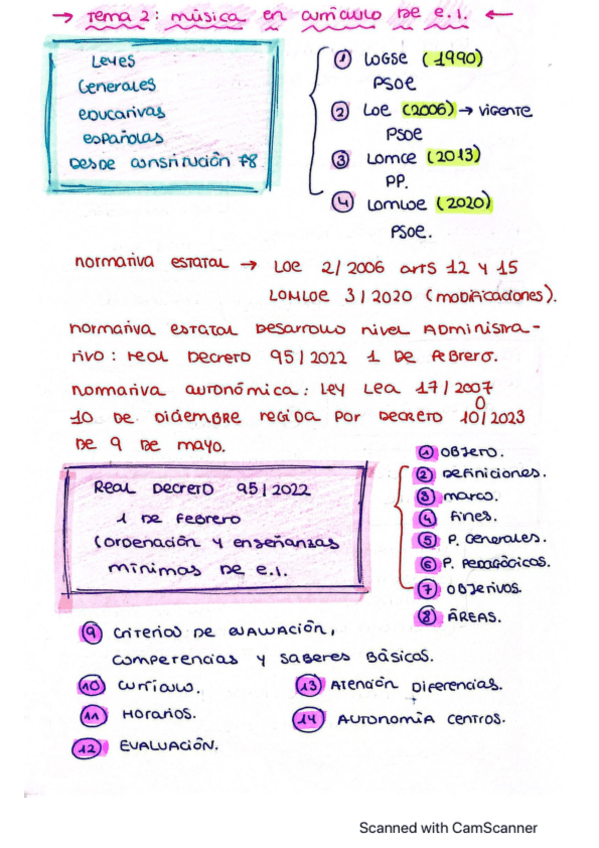 → Tema 2: música en currículo de e.i. ←
Leyes
Generales
educativas
españolas
desde constitución 78
① LOGSE (1990)
PSOE
② Loe (2006) → vigente
PSOE
③ Lomce (2013)
PP.
④ Lomloe (2020)
PSOE.
normativa estatal → Loe 2/2006 arts 12 y 15
LOMLOE 3/2020 (modificaciones).
normativa estatal desarrollo nivel Administra-
tivo: real Decreto 95/2022 1 De febrero.
normativa autonómica: Ley Lea 17/2007
10 de diciembre regida por decreto 100/2023
de 9 de mayo.
Real Decreto 95/2022
1 de febrero
(ordenación y enseñanzas
mínimas de e.i.
① objeto.
② Definiciones.
③ marco.
④ fines.
⑤ P. Generales.
⑥ P. Pedagógicos.
⑦ objetivos.
⑧ ÁREAS.
⑨ Criterios de evaluación,
competencias y saberes básicos.
⑩ currículo.
⑪ Horarios.
⑫ Evaluación.
⑬ Atención Diferencias.
⑭ Autonomía centros.
Scanned with CamScanner